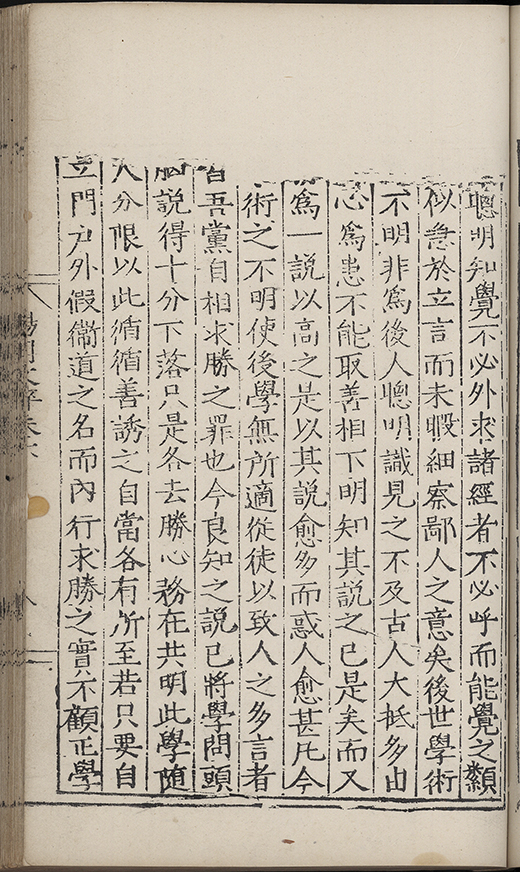 聰明知覺不必外求諸經者不必呼而能覺之類
似急於立言而未暇細察鄙人之意矣後世學術
不明非爲後人聰明識見之不及古人大抵多由
心爲患不能取善相下明知其說之已是矣而又
爲一說以高之是以其說愈多而惑人愈甚凡今
術之不明使後學無所適從徒以致人之多言者
皆吾黨自相求勝之罪也今良知之說已將學問頭
腦說得十分下落只是各去勝心務在共明此學隨
人分限以此循循善誘之自當各有所至若只要自
立門户外假衛道之名而內行求勝之實不顧正學
陽明文粹卷六